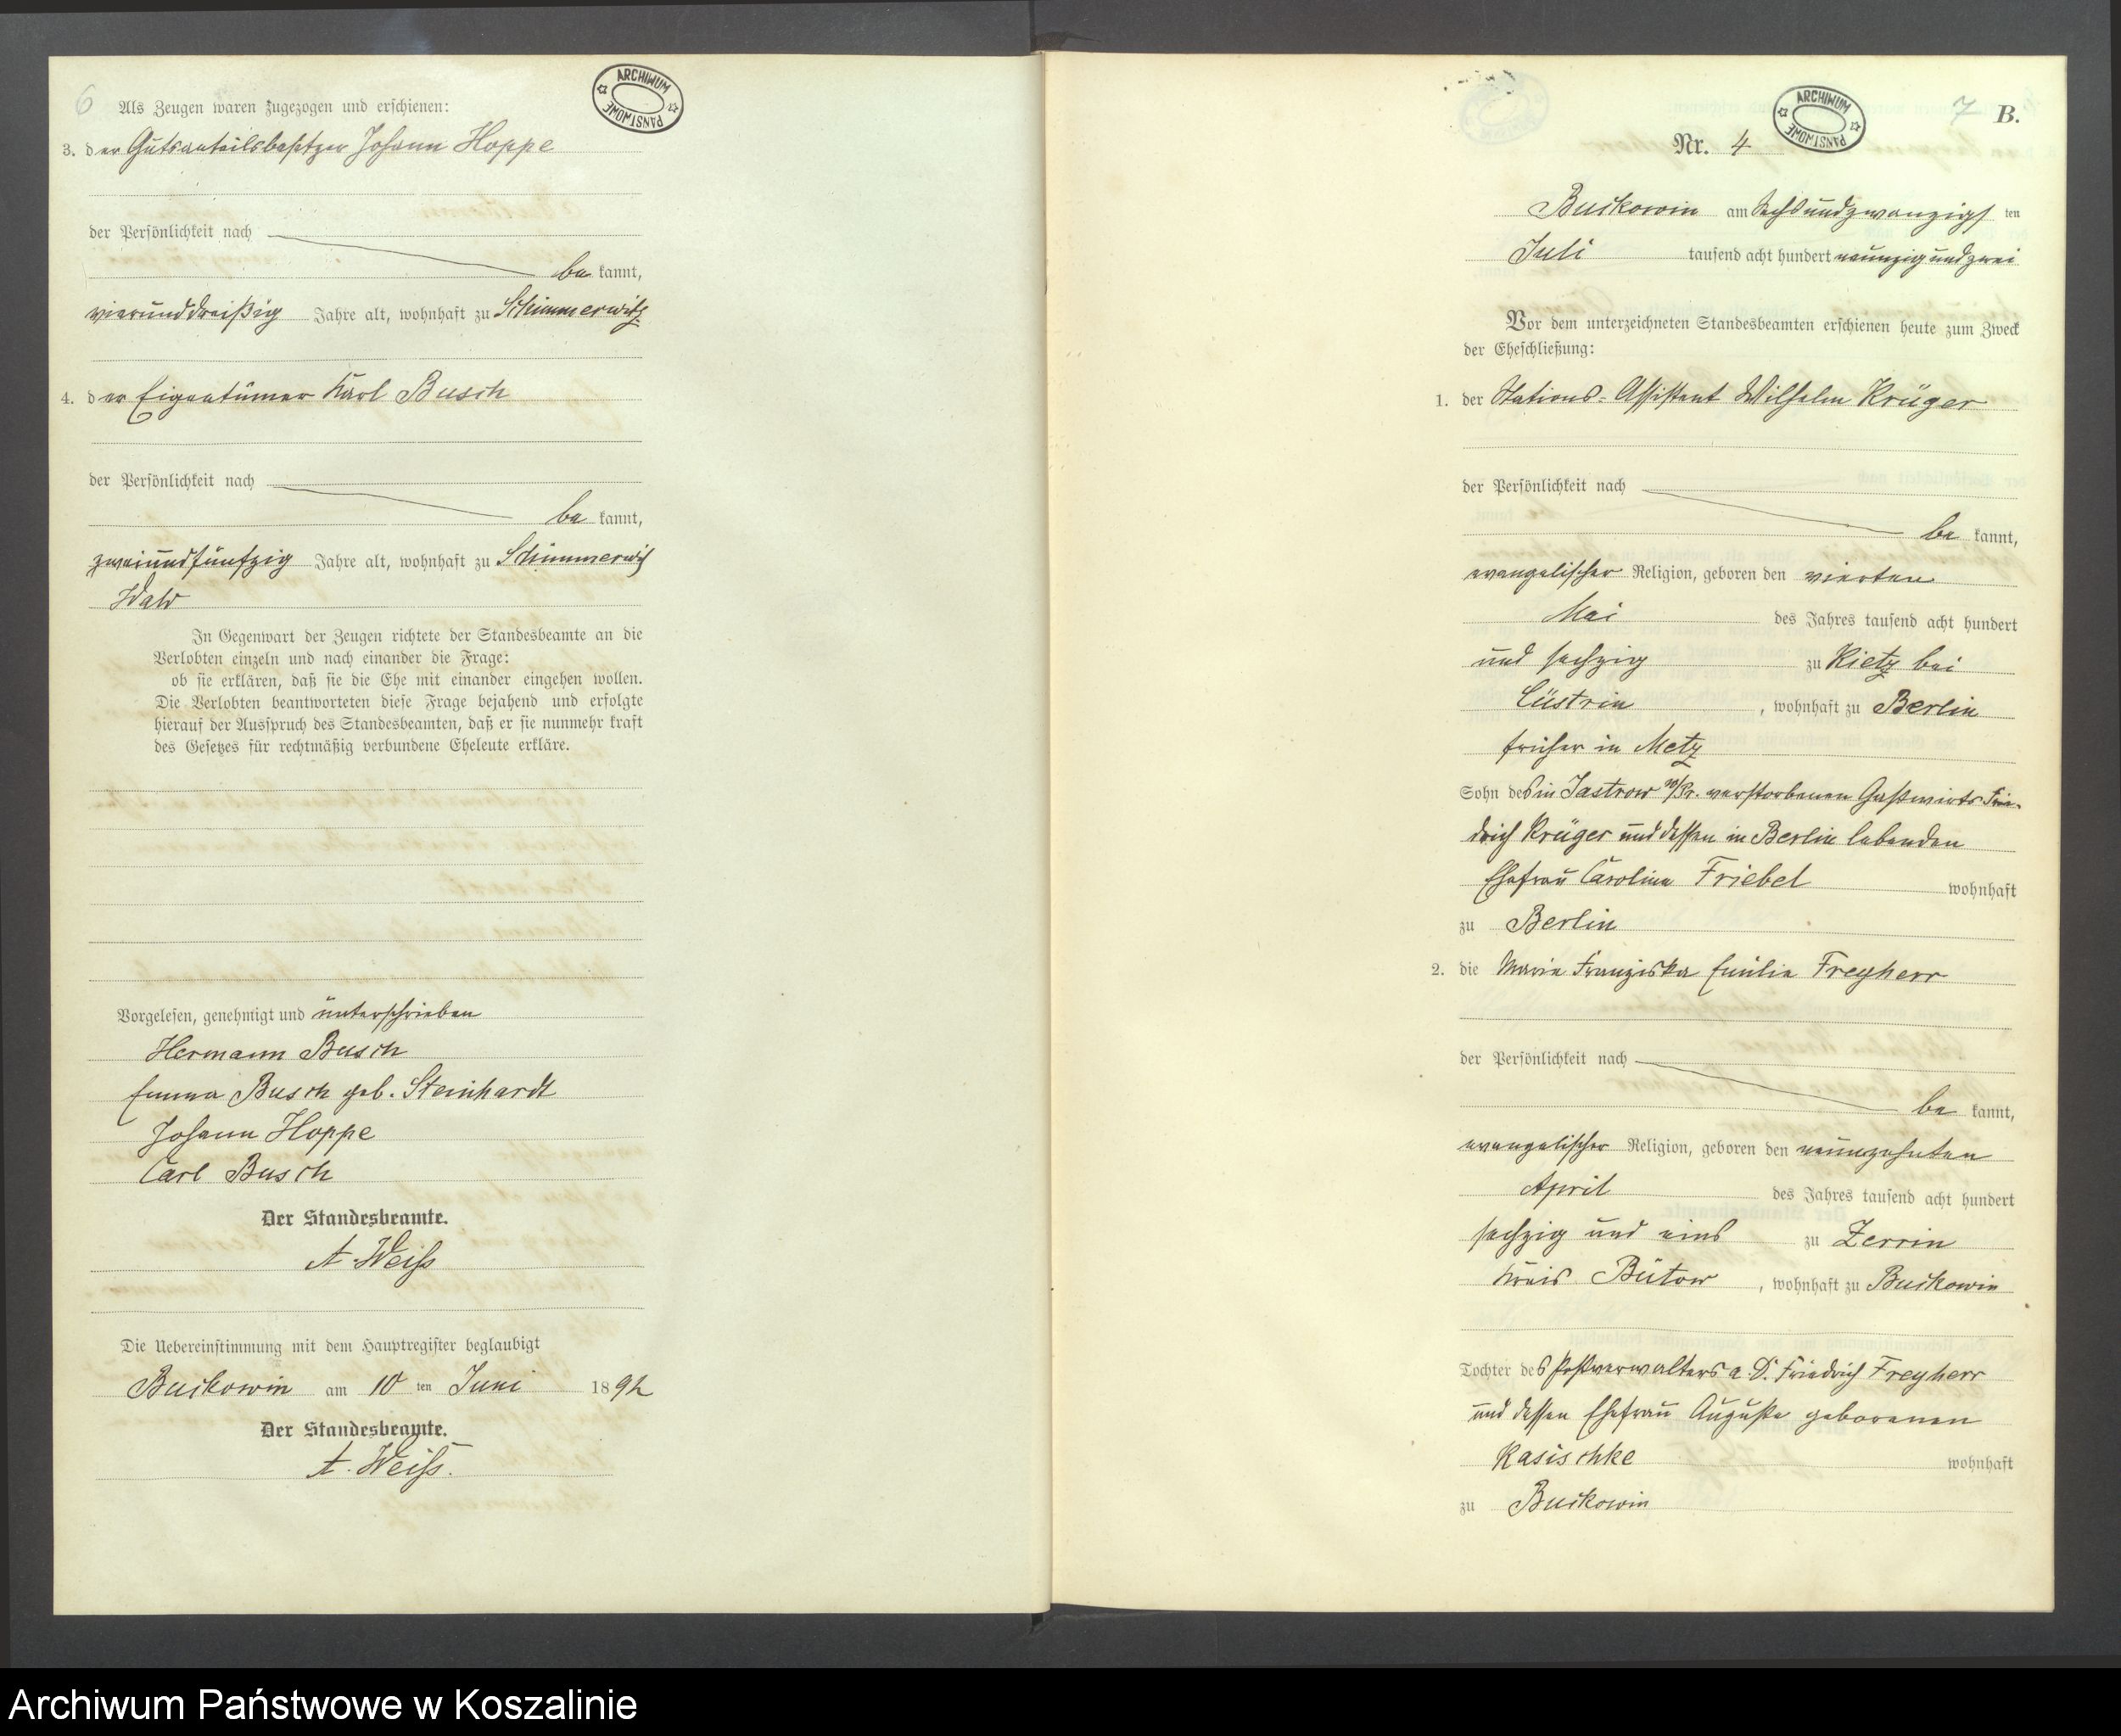 6
Als Zeugen waren zugezogen und erschienen:
ARCHIWUM PAŃSTWOWE
3. der Gutsanteilsbesitzer Johann Hoppe
der Persönlichkeit nach
be kannt,
vierunddreißig Jahre alt, wohnhaft zu Schimmerwitz
4. der Eigentümer Karl Busch
der Persönlichkeit nach
be kannt,
zweiundfünfzig Jahre alt, wohnhaft zu Schimmerwitz
Wald
In Gegenwart der Zeugen richtete der Standesbeamte an die
Verlobten einzeln und nach einander die Frage:
ob sie erklären, daß sie die Ehe mit einander eingehen wollen.
Die Verlobten beantworteten diese Frage bejahend und erfolgte
hierauf der Ausspruch des Standesbeamten, daß er sie nunmehr kraft
des Gesetzes für rechtmäßig verbundene Eheleute erkläre.
Vorgelesen, genehmigt und unterschrieben
Hermann Busch
Emma Busch geb. Steinhardt
Johann Hoppe
Carl Busch
Der Standesbeamte.
A. Weiß
Die Uebereinstimmung mit dem Hauptregister beglaubigt
Buckowin am 10 ten Juni 1892
Der Standesbeamte.
A. Weiß.
7 B.
ARCHIWUM PAŃSTWOWE
Nr. 4
Buckowin am sechsundzwanzigs ten
Juli tausend acht hundert neunzig und zwei
Vor dem unterzeichneten Standesbeamten erschienen heute zum Zweck
der Eheschließung:
1. der Stations-Assistent Wilhelm Krüger
der Persönlichkeit nach
be kannt,
evangelischer Religion, geboren den vierten
Mai des Jahres tausend acht hundert
und sechzig zu Kietz bei
Cüstrin , wohnhaft zu Berlin
früher in Metz
Sohn des in Jastrow W/Pr. verstorbenen Gastwirts Frie-
drich Krüger und dessen in Berlin lebenden
Ehefrau Caroline Friebel wohnhaft
zu Berlin
2. die Maria Franziska Emilie Freyherr
der Persönlichkeit nach
be kannt,
evangelischer Religion, geboren den neunzehnten
April des Jahres tausend acht hundert
sechzig und eins zu Zerrin
Kreis Bütow , wohnhaft zu Buckowin
Tochter des Postverwalters a. D. Friedrich Freyherr
und dessen Ehefrau Auguste geborenen
Kasischke wohnhaft
zu Buckowin
Archiwum Państwowe w Koszalinie